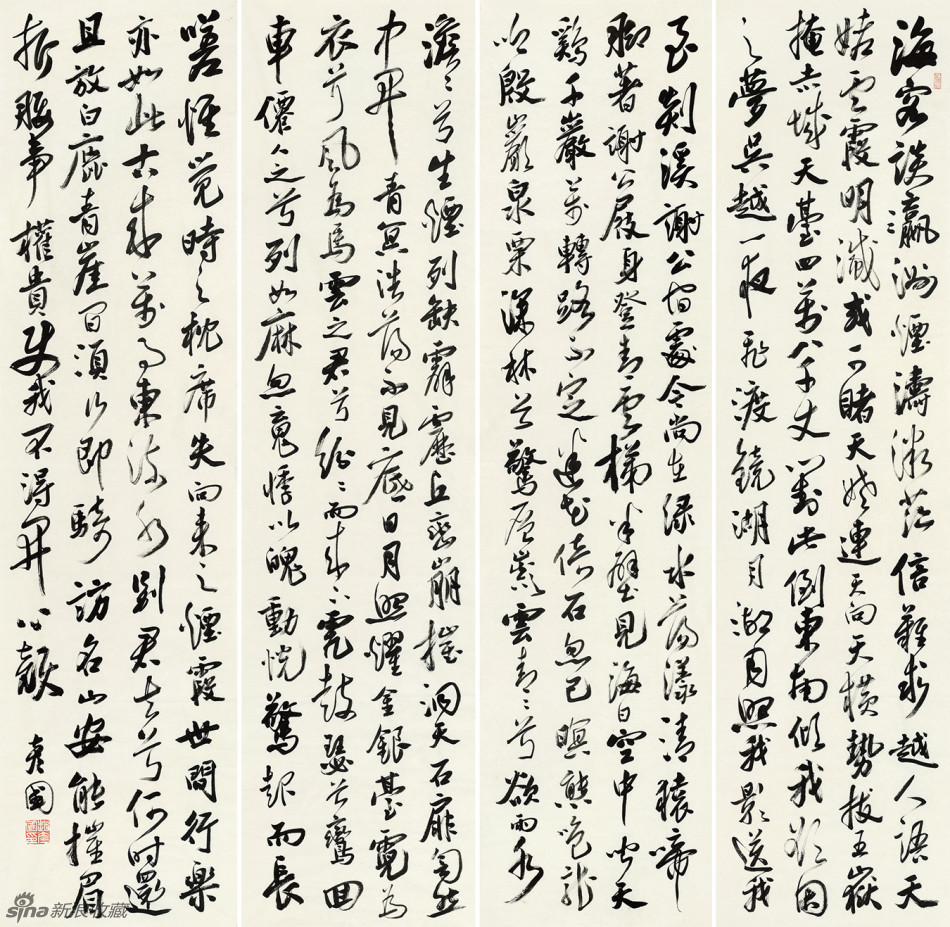 海客談瀛洲煙濤微茫信難求越人語天
姥雲霞明滅或可睹天姥連天向天橫勢拔五嶽
掩赤城天臺四萬八千丈對此倒東南傾我欲因
之夢吳越一夜飛渡鏡湖月湖月照我影送我
至剡溪謝公宿處今尚在綠水蕩漾清猿啼
腳著謝公屐身登青雲梯半壁見海日空中聞天
雞千巖萬轉路不定迷花倚石忽已暝熊咆龍
吟殷巖泉栗深林兮驚層巔雲青々兮欲雨水
澹々兮生煙列缺霹靂丘巒崩摧洞天石扉訇然
中開青冥浩蕩不見底日月照耀金銀臺霓為
衣兮風為馬雲之君兮紛々而來下虎鼓瑟兮鸞回
車僊人之兮列如麻忽魂悸以魄動恍驚起而長
嗟惟覺時之枕席失向來之煙霞世間行樂
亦如此古來萬事東流水別君去兮何時還
且放白鹿青崖間須行即騎訪名山安能摧眉
折腰事權貴使我不得開心顏
sina新浪收藏